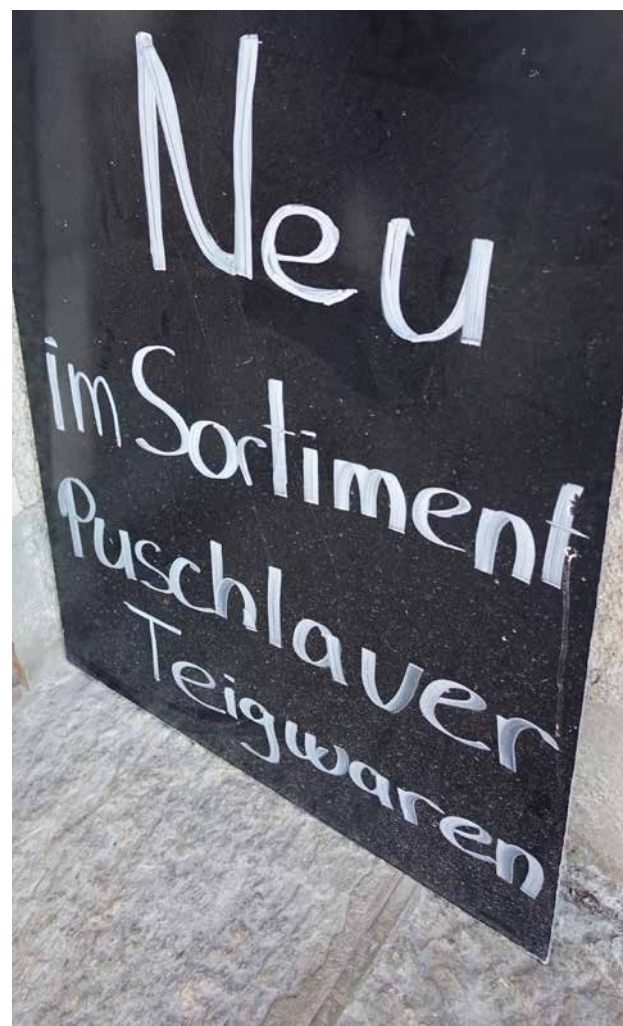 Neu
im Sortiment
Puschlaver
Teigwaren